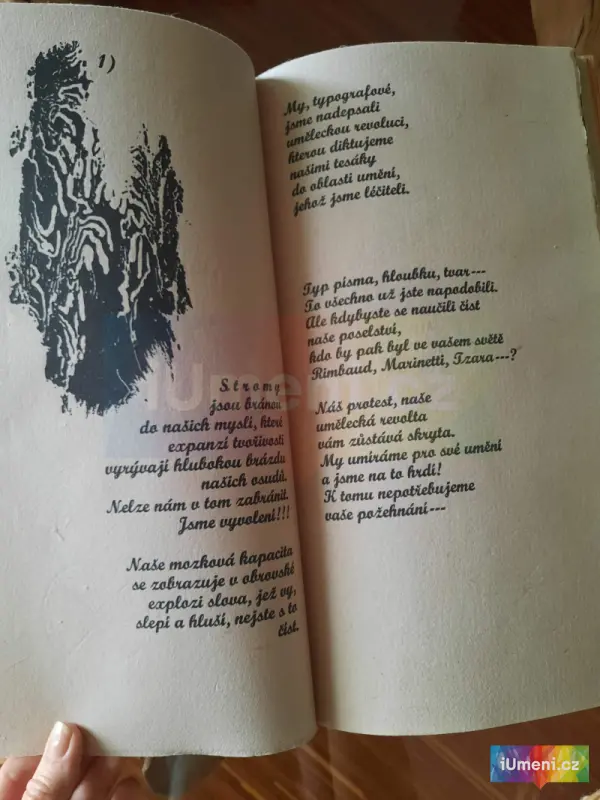 1)
S t r o m y
jsou bránou
do našich myslí, které
expanzí tvořivosti
vyrývají hlubokou brázdu
našich osudů.
Nelze nám v tom zabránit.
Jsme vyvolení!!!
Naše mozková kapacita
se zobrazuje v obrovské
explozi slova, jež vy,
slepí a hluší, nejste s to
číst.
My, typografové,
jsme nadepsali
uměleckou revoluci,
kterou diktujeme
našimi tesáky
do oblasti umění,
jehož jsme léčiteli.
Typ písma, hloubku, tvar---
To všechno už jste napodobili.
Ale kdybyste se naučili číst
naše poselství,
kdo by pak byl ve vašem světě
Rimbaud, Marinetti, Tzara---?
Náš protest, naše
umělecká revolta
vám zůstává skryta.
My umíráme pro své umění
a jsme na to hrdí!
K tomu nepotřebujeme
vaše požehnání---
iUmeni.cz
iUmeni.cz